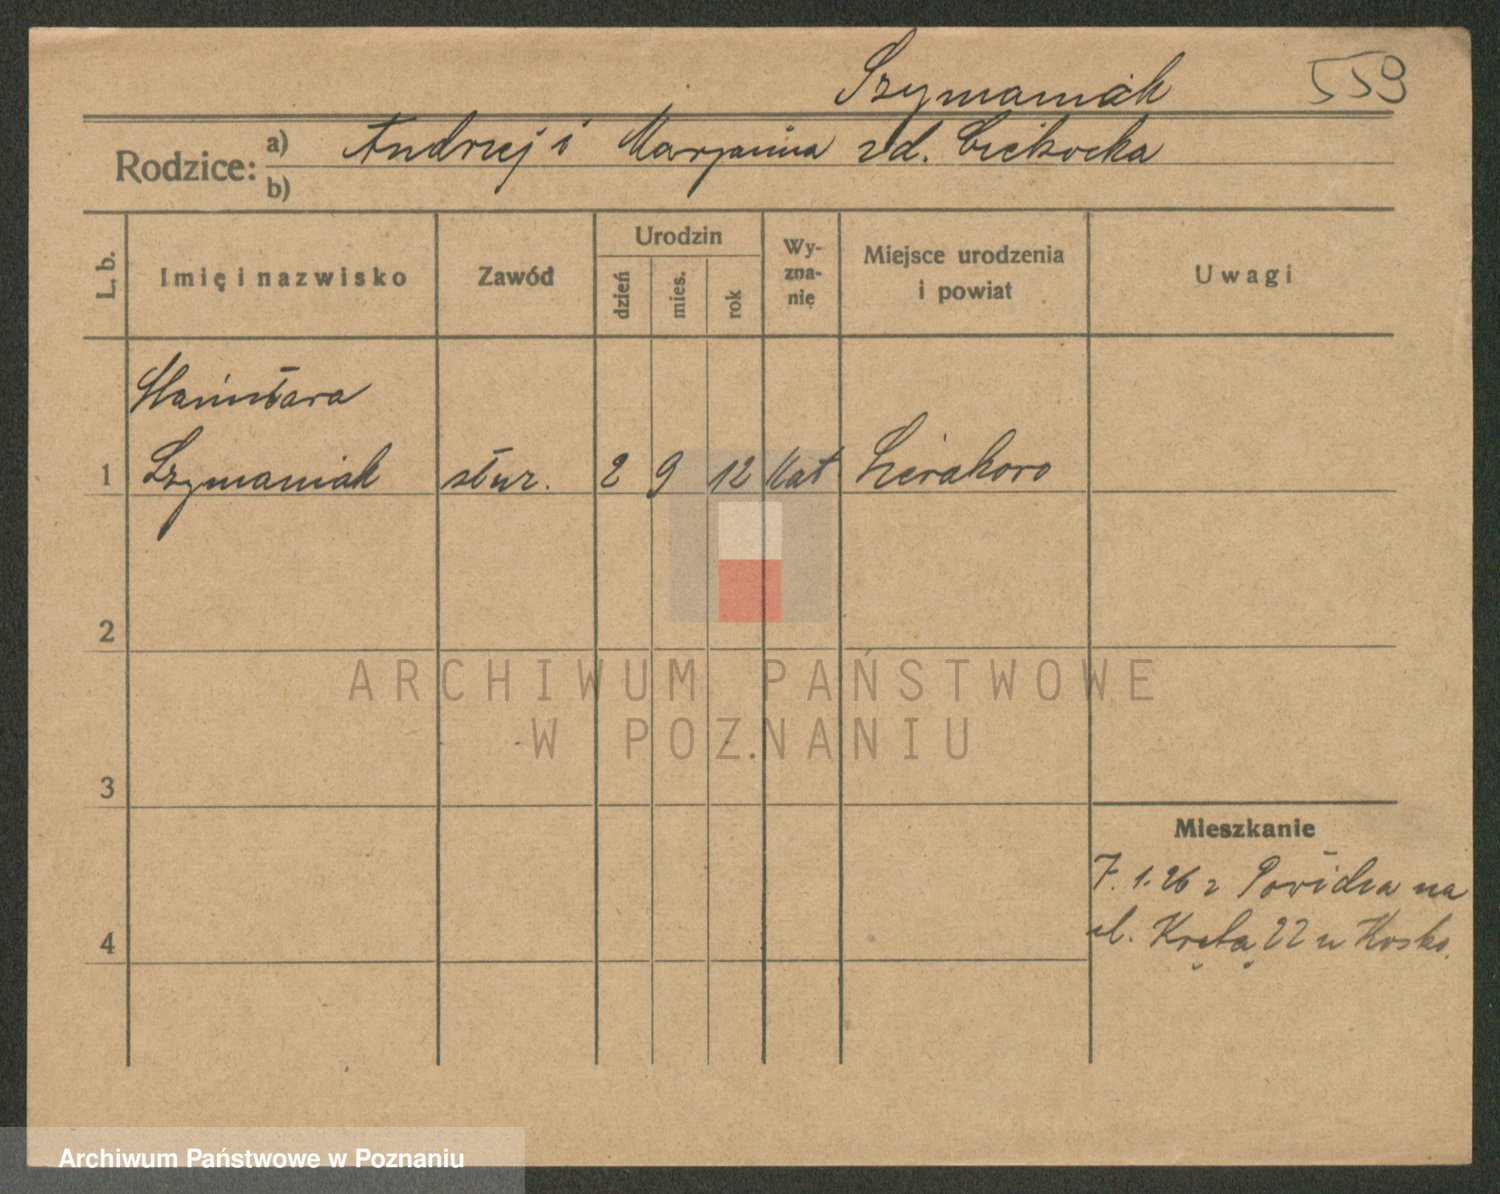 Szymaniak 559
Rodzice: a) Andrzej i Marjanna zd.
b)
L. b.
Imię i nazwisko
Zawód
Urodzin
dzień
mies.
rok
Wy-
zna-
nię
Miejsce urodzenia
i powiat
Uwagi
Stanisława
1 Szymaniak służ. 2 9 12 kat Sierakowo
2
ARCHIWUM PAŃSTWOWE
W POZNANIU
3
Mieszkanie
7.1.26 z Powidza na
ul. Kręta 22 u
4
Archiwum Państwowe w Poznaniu